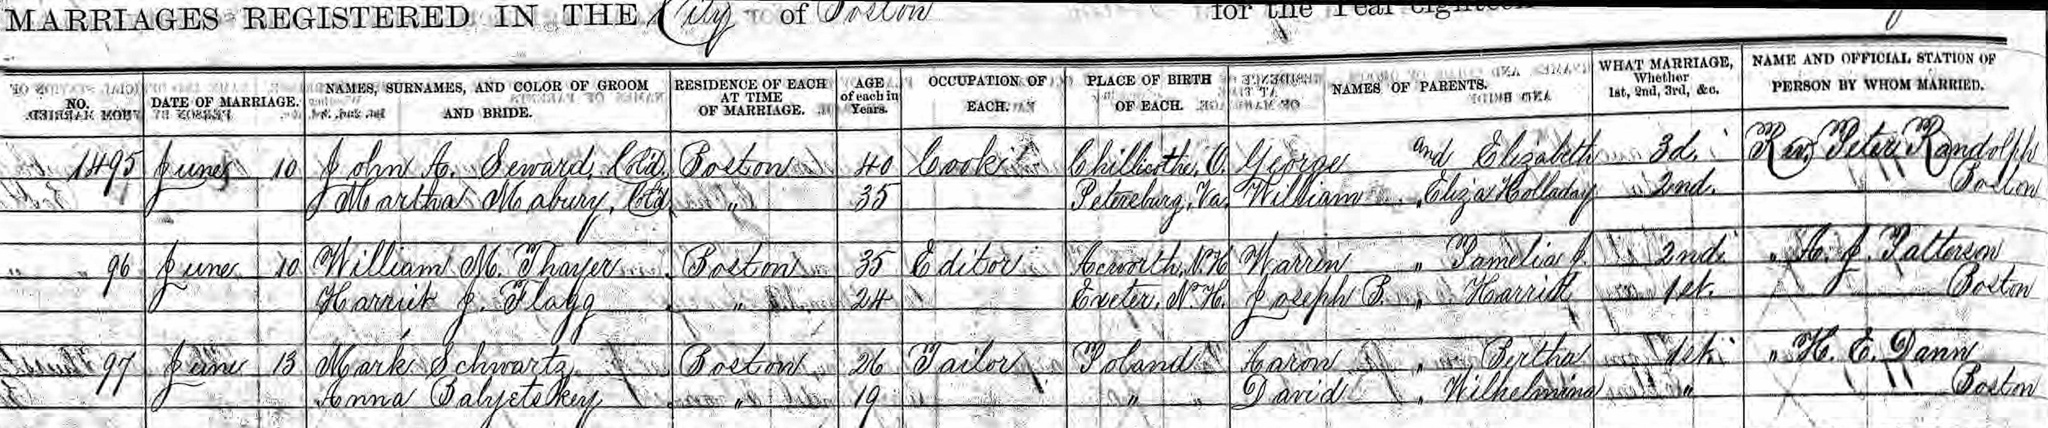 MARRIAGES REGISTERED IN THE City of Boston for the Year eighteen
NO. DATE OF MARRIAGE. NAMES, SURNAMES, AND COLOR OF GROOM AND BRIDE. RESIDENCE OF EACH AT TIME OF MARRIAGE. AGE of each in Years. OCCUPATION OF EACH. PLACE OF BIRTH OF EACH. NAMES OF PARENTS. WHAT MARRIAGE, Whether 1st, 2nd, 3rd, &c. NAME AND OFFICIAL STATION OF PERSON BY WHOM MARRIED.
1495 June 10 John A. Seward, Col'd. Boston 40 Cook Chillicothe, O. George and Elizabeth 3d. Rev. Peter Randolph
Martha Mabury, Col'd " 35 Petersburg, Va. William " Eliza Holladay 2nd. Boston
" 96 June 10 William M. Thayer Boston 35 Editor Acworth, N.H. Warren " Pamelia J. 2nd. " A. J. Patterson
Harriet J. Flagg " 24 Exeter, N.H. Joseph B. " Harriet 1st. Boston
97 June 13 Mark Schwartz Boston 26 Tailor Poland Aaron " Bertha 1st. " H. E. Dann
Anna " 19 " " David " Wilhelmina " Boston